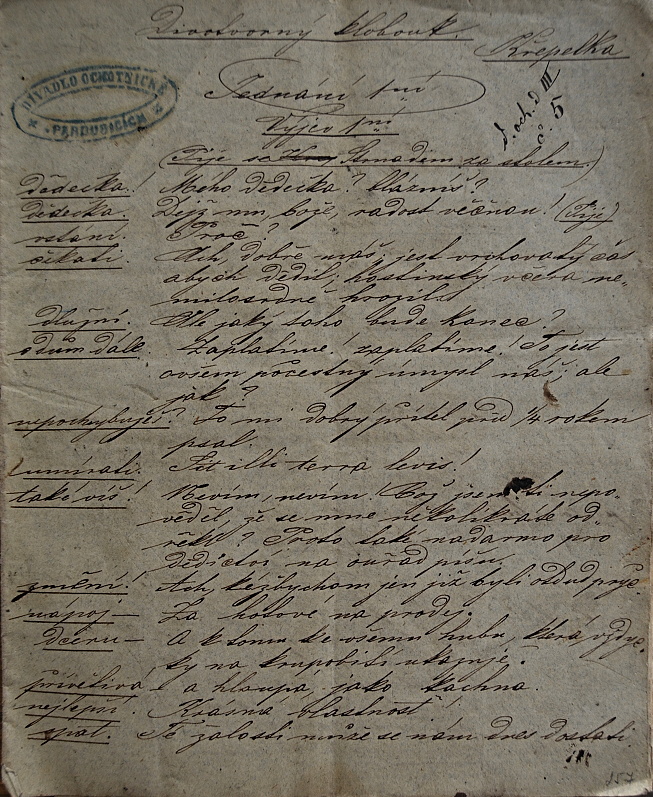 Divotvorný klobouk.
Křepelka
DIVADLO OCHOTNICKÉ
PARDUBICÍCH
d. och. D III
č. 5
Jednání 1ní
Výjev 1ní
(Pije se Strnadem za stolem.)
dědečka! Mého dědečka? blázníš?
dědečka. Dejž mu, bože, radost věčnou! (Pije)
vstáni. Proč?
čekati. Ach, dobře máš, jest vrchovatý čas
abych dědil; hostinský včera ne-
milosrdně hrozil.
dlužní. Ale jaký toho bude konec?
a dům dále. Zaplatíme! zaplatíme! To jest
ovšem pocestný úmysl náš; ale
jak?
nepochybuješ? To mi dobrý přítel před 1/4 rokem
psal.
umírati. Sit illi terra levis!
také víš! Nevím, nevím! Což jsem ti nepo-
věděl, že se mne několikráte od-
řekl? Proto také nadarmo pro
dědictví na ouřad píšu.
změní! Ach, kéžbychom jen již byli odtud pryč.
nápoj — Za hotové na prodej.
dceru — A k tomu ke všemu hubu, která vždyc-
ky na krupobití ukazuje.
přívětivá — a hloupá, jako kachna.
nejlepší. Krásná vlastnost!
spat. Té žalosti může se nám dnes dostati
157